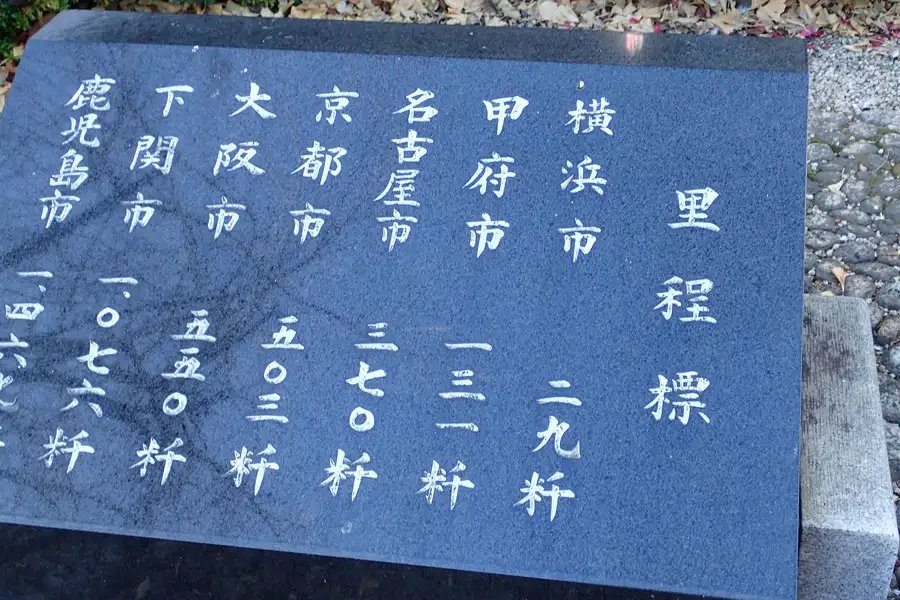 里程標
横浜市 二九粁
甲府市 一三一粁
名古屋市 三七〇粁
京都市 五〇三粁
大阪市 五五〇粁
下関市 一、〇七六粁
鹿児島市 一、四六九